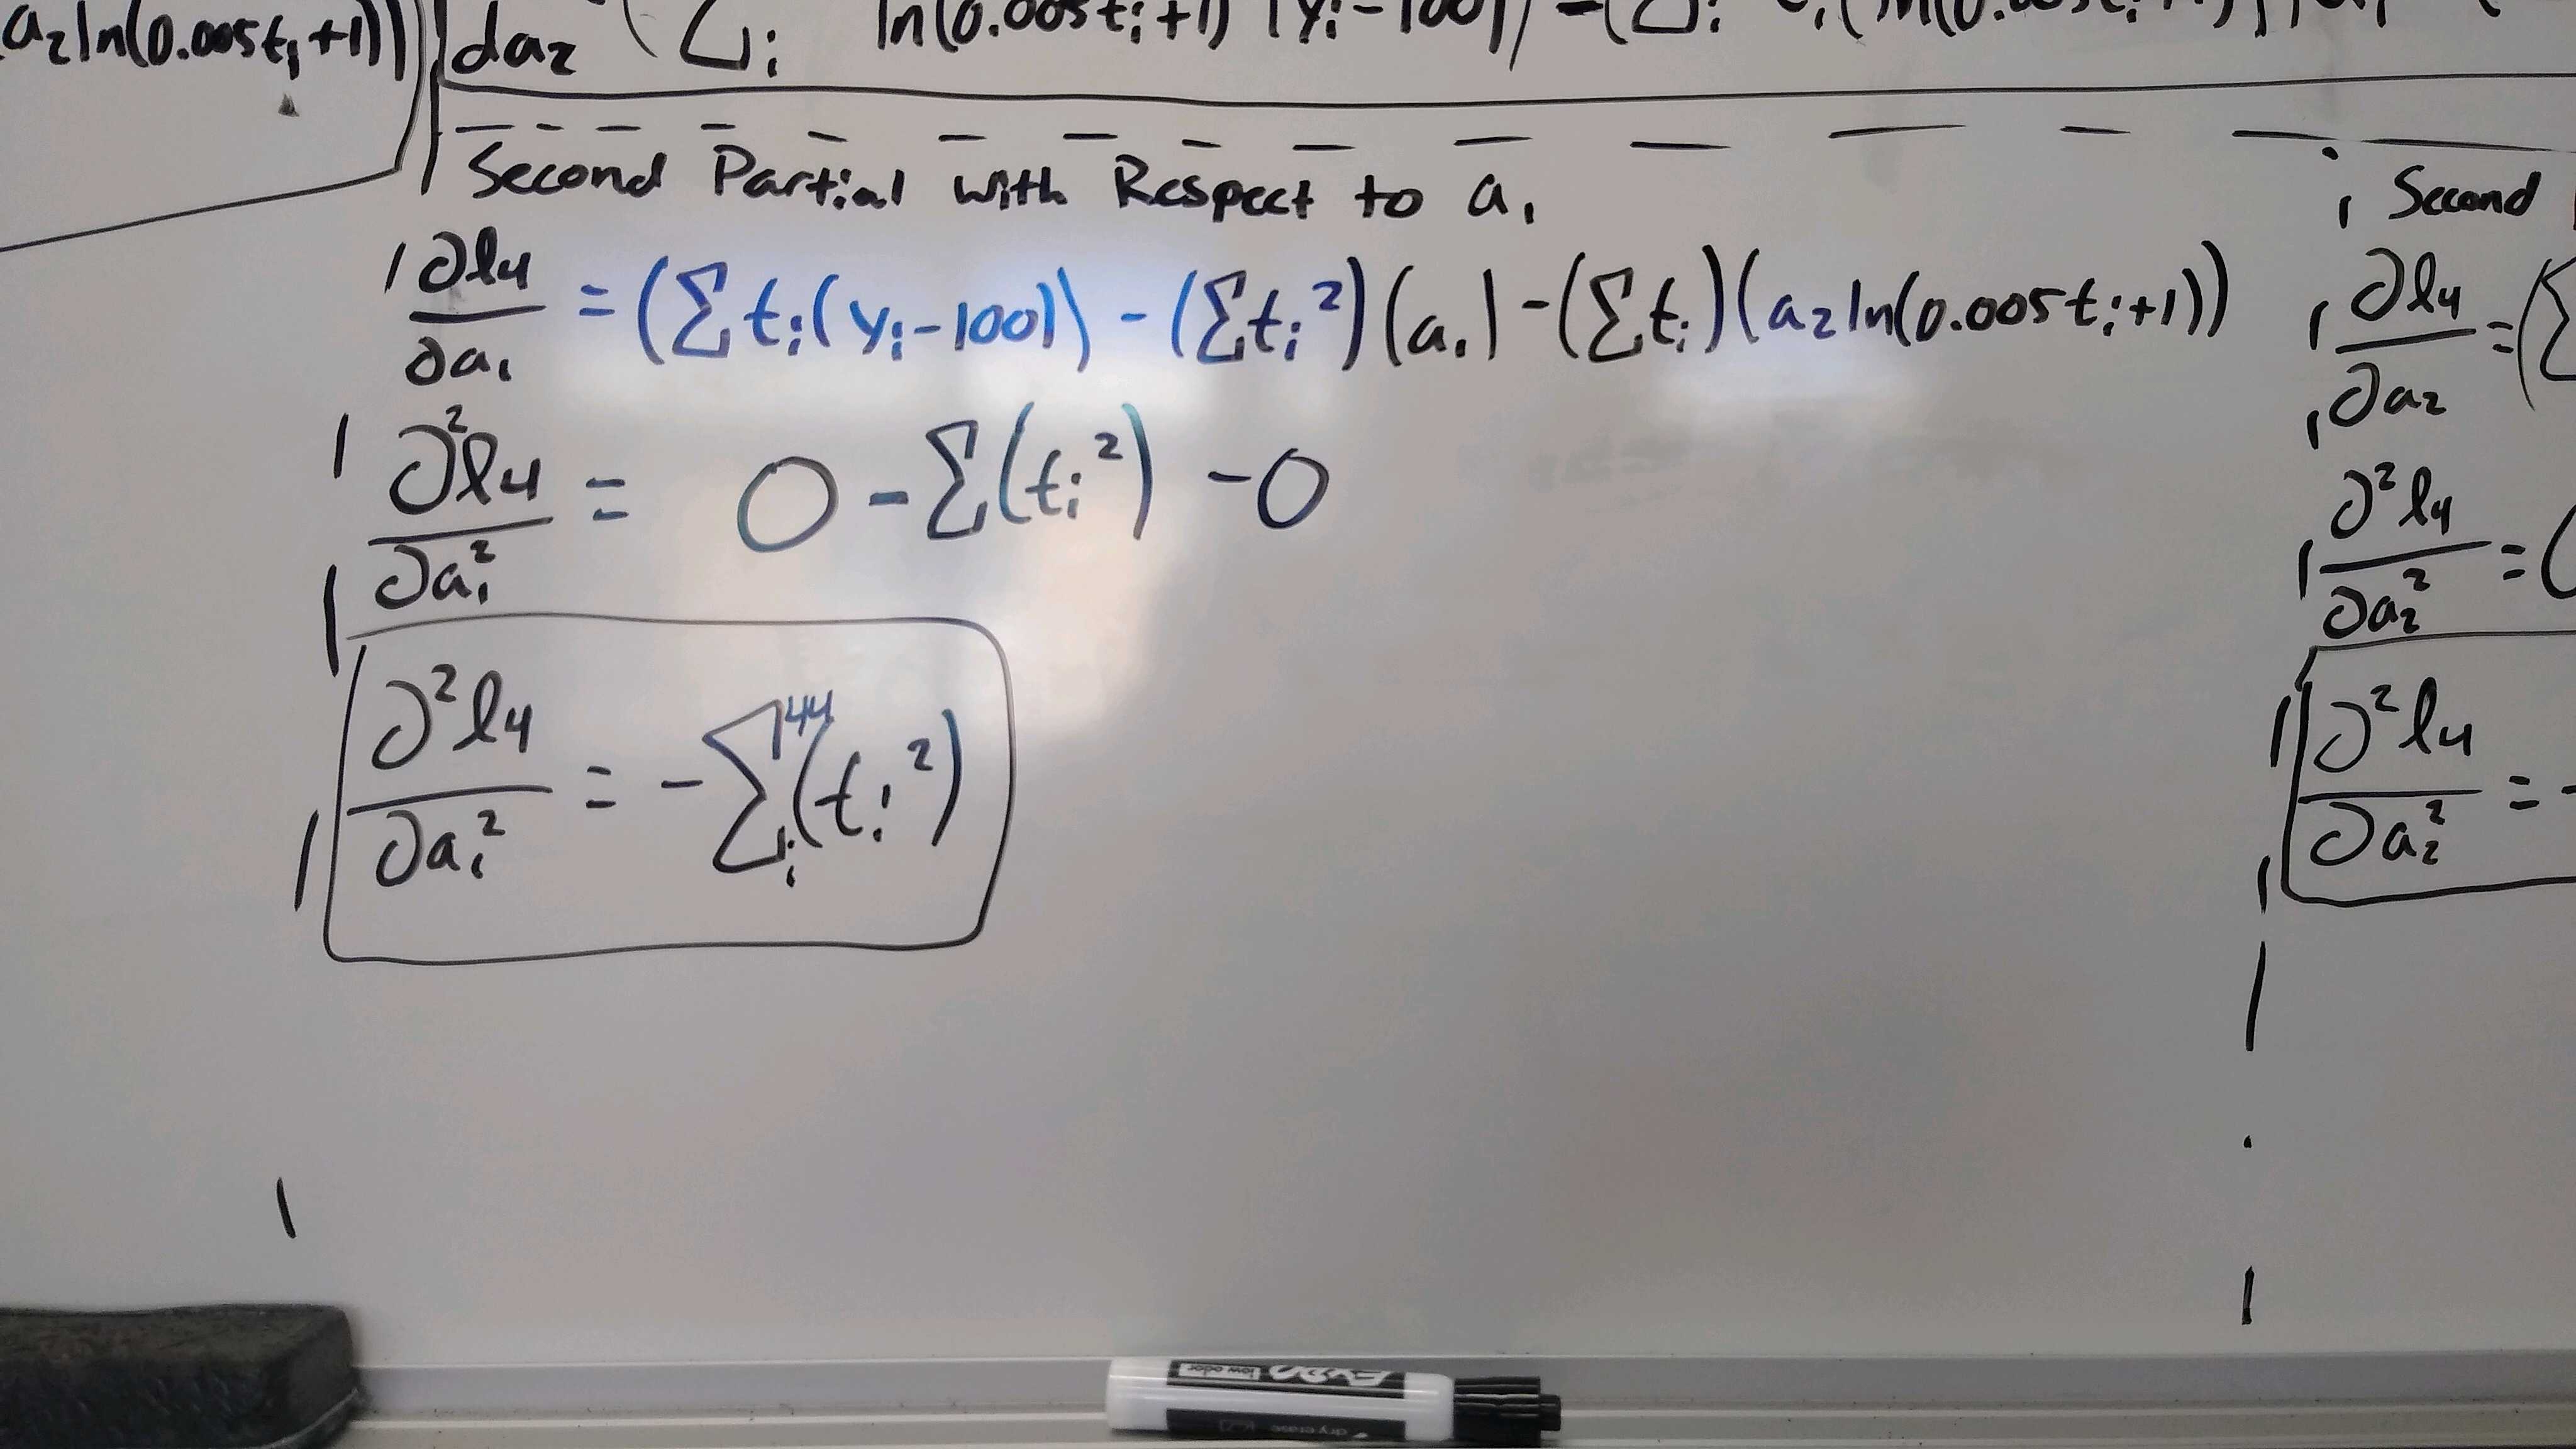 a₂ln(0.005tᵢ+1))
da₂ (Σᵢ ln(0.005tᵢ+1) (yᵢ-100)) - (Σᵢ
Second Partial with Respect to a₁
∂l₄/∂a₁ = (Σtᵢ(yᵢ-100)) - (Σtᵢ²)(a₁) - (Σtᵢ)(a₂ln(0.005tᵢ+1))
∂²l₄/∂a₁² = 0 - Σ(tᵢ²) - 0
∂²l₄/∂a₁² = -Σᵢ⁴⁴(tᵢ²)
Second
∂l₄/∂a₂ = (Σ
∂²l₄/∂a₂² = (
∂²l₄/∂a₂² = -
EXPO
low odor
dry erase